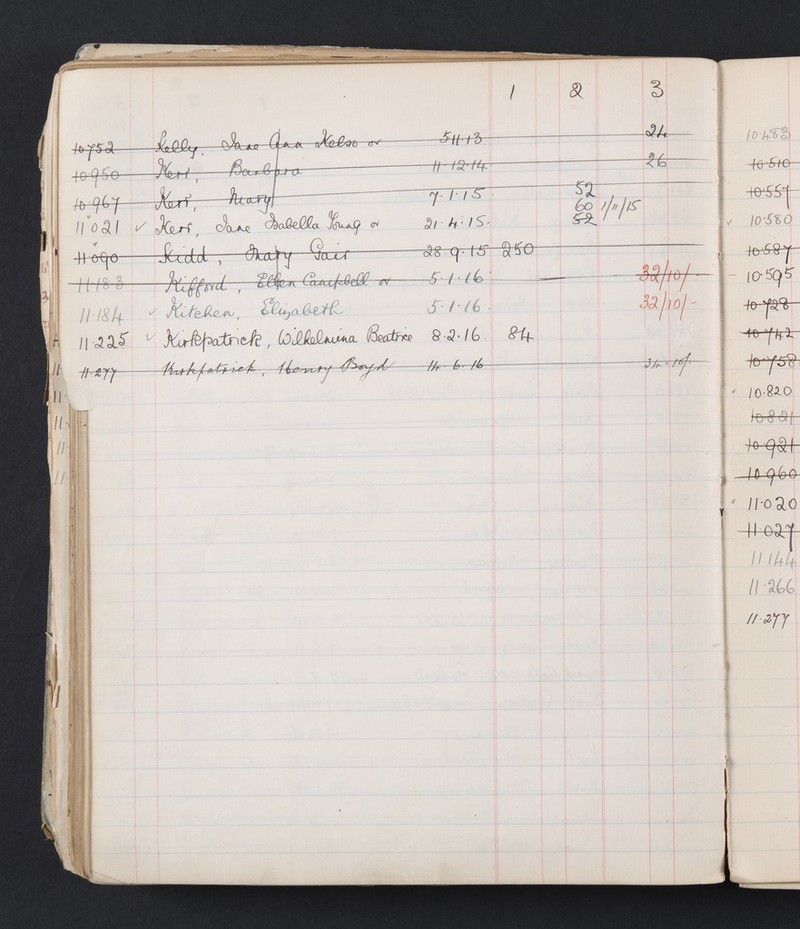 1 2 3
10752 Kelly, Jane Ann Kelso or 5.11.13 24
10950 Kerr, Barbara 11.12.14 26
10967 Kerr, Mary 7.1.15 52
60 1/11/15
11021 ✓ Kerr, Jane Isabella Young or 21.4.15. 52
11090 Kidd, Mary Gair 28.9.15 250
11183 Kifford, Ellen Campbell or 5.1.16 32/10/-
11.184 ✓ Kitchen, Elizabeth 5.1.16. 32/10/-
11225 ✓ Kirkpatrick, Wilhelmina Beatrice 8.2.16. 84
11.277 Kirkpatrick, Henry Boyd 14.6.16 34-10/-
10.483
10.510
10.557
✓ 10.580
10.587
10.595
10.728
10.742
10.758
10.820
10.821
10.921
10.960
11.020
11.027
11.144
11.266
11.277